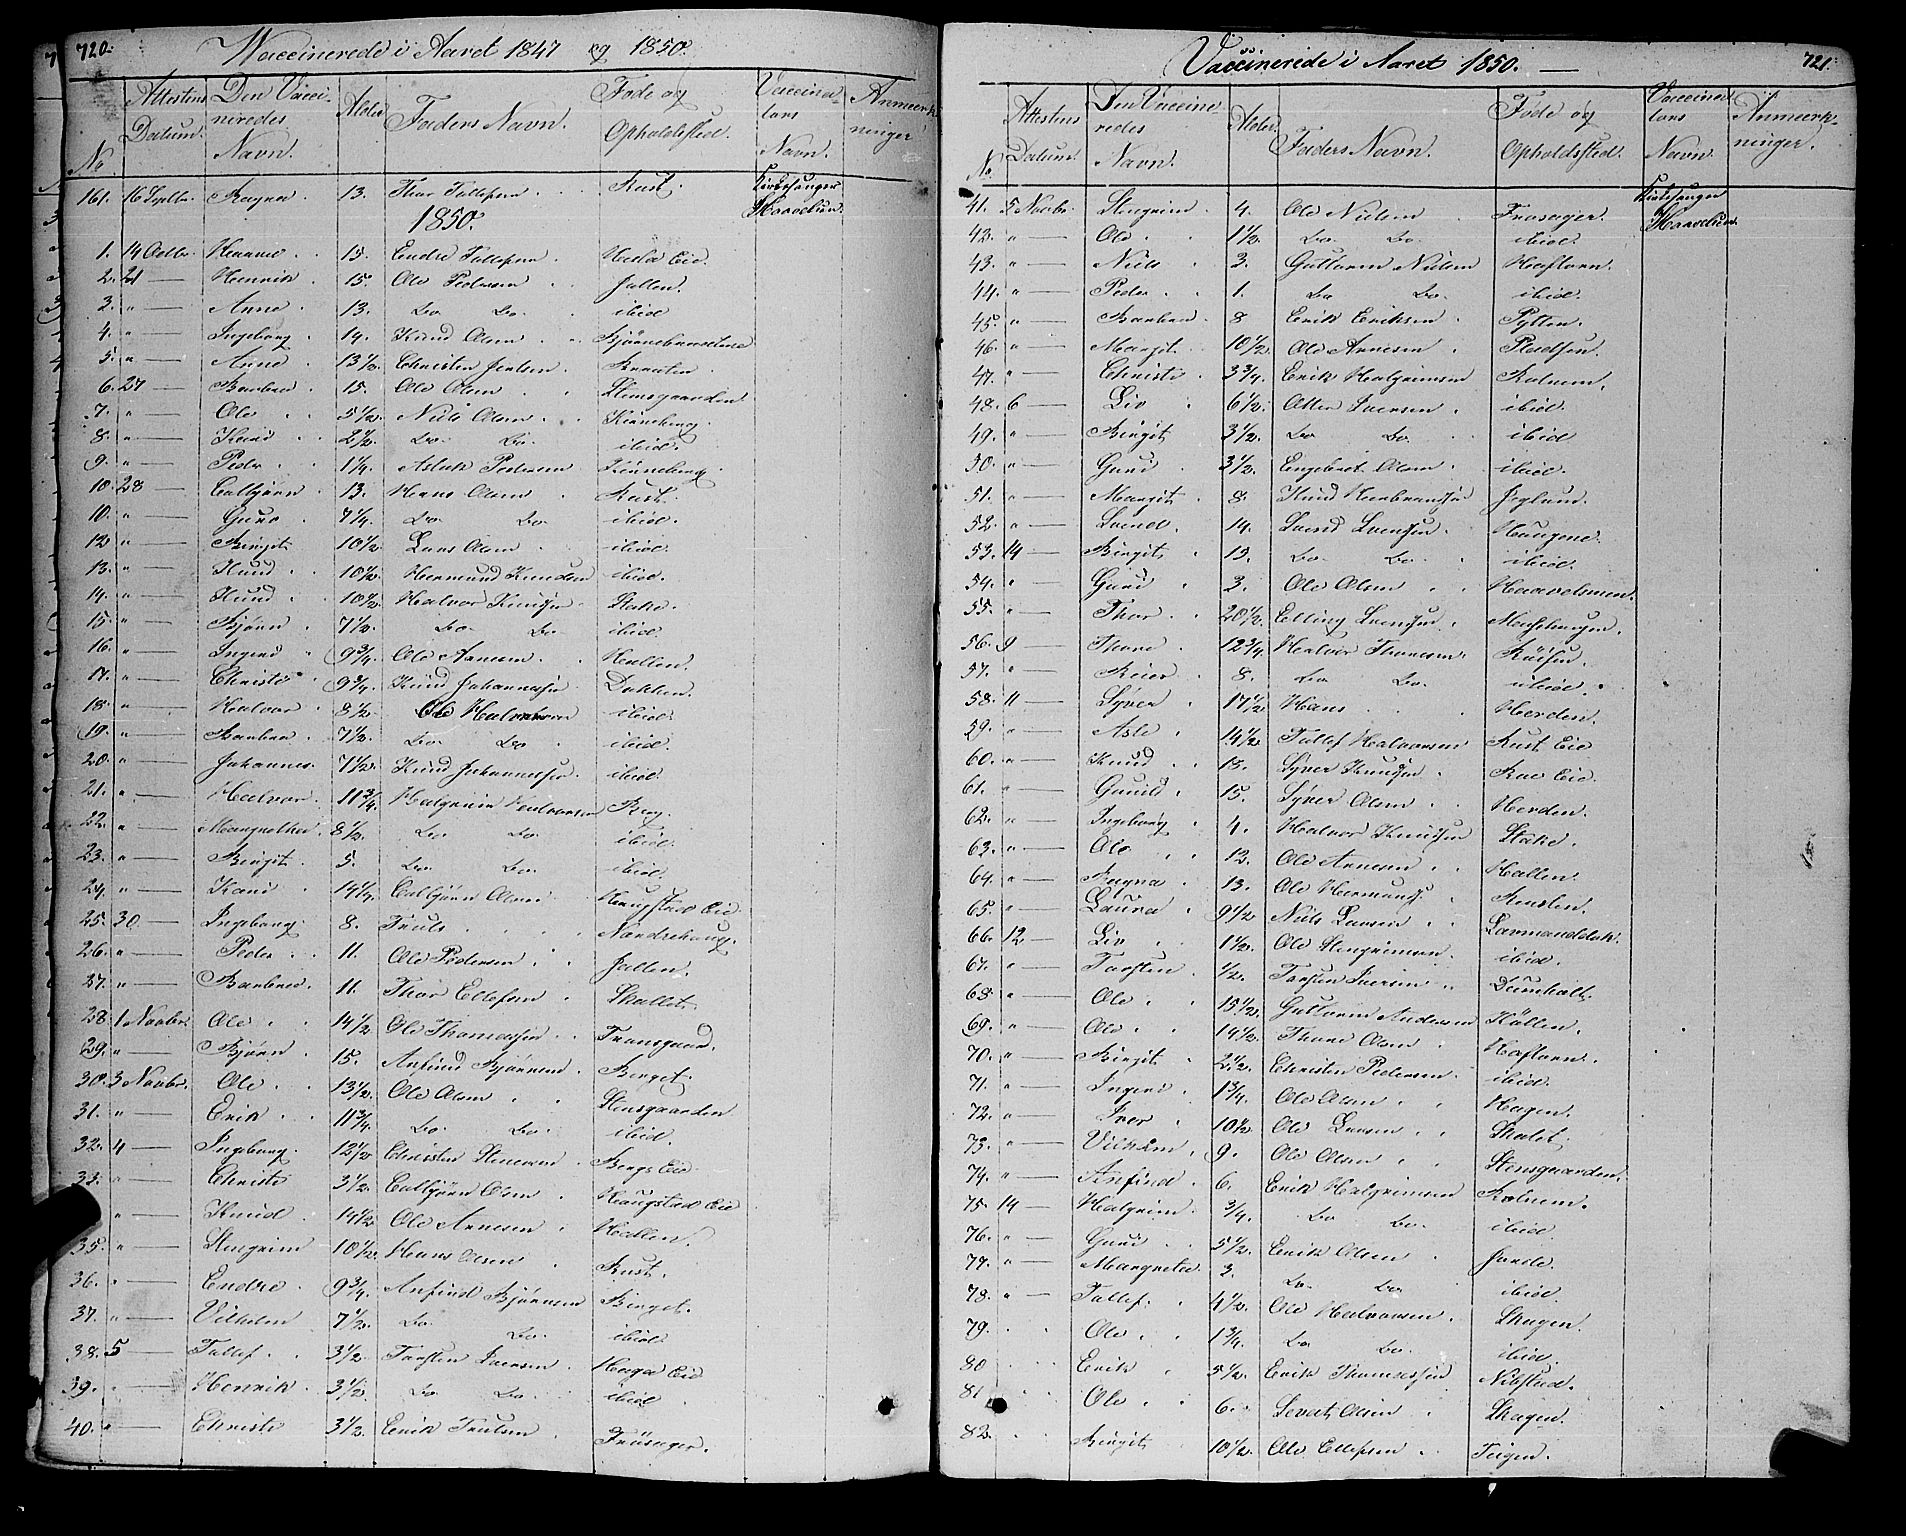 720.
Vaccinerede i Aaret 1847 og 1850.
No Attestens Datum. Den Vaccineredes Navn. Alder Faders Navn. Føde og Opholdssted. Vaccinators Navn. Anmærkninger
161. 16 Ragna 13. Thor Tollefsen Rust. Kirkesanger
1850.
1. 14 Octbr. 15. Endre Tollefsen Eie.
2. 21 Henrik 15. Ole Pedersen Jallen.
3. " Anne 13. Do. Do. ibid
4. " Ingeborg 14. Knud Olsen
5. " Anne 13½ Christen Jensen Braaten
6. 27 Barbra 15. Ole Olsen Stensgaarden
7. " Ole 5½ Niels Olsen
8. " Knud 2½ Do. Do. ibid.
9. " Peder 1¼ Aslak Pedersen
10. 28 Embjørn 13. Hans Olsen Rust.
10. " Guro 7¼ Do. Do. ibid.
12 " Birgit 10½ Lars Olsen ibid.
13. " Knud 10½ Hermund Knudsen ibid.
14. " Knud 10½ Halvor Knudsen Stake.
15. " Bjørn 7½ Do. Do. ibid.
16. " Ingerid 9¾ Ole Arnesen Hallen.
17. " Christi 9¾ Knud Johannesen Dokken.
18. " Halvor 8½ Ole Halvorsen ibid.
19. " Barbra 7½ Do. Do. ibid.
20. " Johannes. 7½ Knud Johannesen ibid.
21. " Halvor. 11¾ Halgrim Halvorsen
22. " Margrethe. 8½ Do. Do. ibid.
23. " Birgit. 5. Do. Do. ibid.
24. " Kari 14¼ Embjørn Olsen Haugstad Eie
25. 30 Ingeborg 8. Truls
26. " Peder 11. Ole Pedersen Jallen.
27. " Barbra. 11. Thor Ellefsen Skallet.
28. 1 Novbr. Ole 14½ Ole Thomassen
29. " Bjørn 15. Anfind Bjørnsen Berget.
30. 3 Novbr. Ole 13½ Ole Olsen Stensgaarden
31. " Erik 11¾ Do. Do. ibid.
32. 4 Ingeborg. 12½ Christen Bergs Eie
33. " Christi 3½ Embjørn Olsen Haugstad Eie
" Knud 14½ Ole Arnesen Hallen.
35. " Stengrim 10½ Hans Olsen Rust.
36. " Endre 9¾ Anfind Bjørnsen Berget.
37. " Vilhelm 7½ Do. Do. ibid.
38. 5 Tollef 3½ Torsten Iversen Haga Eie
39. " Henrik 3½ Do. Do. ibid
40. " Christi 3½ Erik Trulsen Frøsager.
Vaccinerede i Aaret 1850.
721.
No. Attestens Datum Den Vaccineredes Navn. Alder Faders Navn. Føde og Opholdssted. Vaccinators Navn. Anmærkninger.
41. 5 Novbr. Stengrim 4. Ole Nielsen Frøsager. Kirkesanger
42. " Ole 1½. Do. Do. ibid.
43. " Niels 3. Guttorm Nielsen Haftorn.
44. " Peder 1. Do. Do. ibid.
45. " Barbra 8 Erik Eriksen Pytten.
46. " Margit 10½ Ole Arnesen Pladsen.
47. " Christi 3¾. Erik Halgrimsen Rolum.
48. 6 Liv 6½ Iversen ibid.
49. " Birgit 3½ Do. Do. ibid
50. " Guri 3½. Engebret Olsen ibid.
51. " Margit 8. Knud
52. " Svend 14. Svend Svendsen Haugene.
53. 14 Birgit 13. Do. Do. ibid.
54. " Guri 3. Ole Olsen
55. " Thor 20½. Elling Svendsen
56. 9 Thore 12¾ Halvor Thoresen
57. " Reier 8. Do. Do. ibid.
58. 11 Syver 17½ Hans Herden.
59. " Asle 14½. Tollef Halvorsen Rust Eie
60. " Knud 13. Syver Knudsen Eie.
61. " 15. Syver Olsen Herden.
62. " Ingeborg 4. Halvor Knudsen Stake.
63. " Ole 12. Ole Arnesen Hallen.
64. " Ragna 13. Ole
65. " Laura 9½ Niels Larsen
66. 12 Liv 1½. Ole Stengrimsen ibid.
67. " Torsten ½. Torsten Iversen
68. " Ole 15½. Guttorm Andersen
69. " Ole 14½. Thore Olsen Haftorn.
70. " Birgit 2½. Christen Pedersen ibid.
71. " Ingeri 1¾. Ole Olsen Hagen.
72. " Iver 10½ Ole Larsen
73. " Vilhelm 9. Ole Olsen Stensgaarden.
74. " Anfind 6. Erik Halgrimsen Rolum.
75. 14 Halgrim ¾. Do. Do. ibid.
76. " Guri 5½. Erik Olsen
77. " Margrete 3. Do. Do. ibid.
78. " Tollef. 4½. Ole Halvorsen Skagen.
79. Ole 1¾. Do. Do. ibid.
80 Erik 5½. Erik Thomassen
81 Ole 6. Olsen Skagen.
82. Birgit 10½. Ole Ellefsen Teigen.